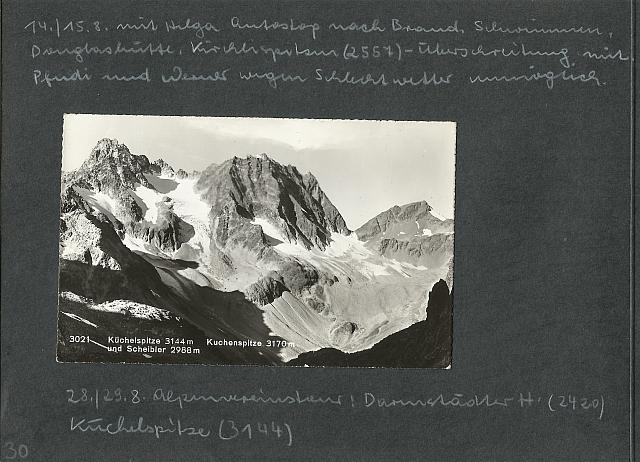 14./15.8. mit Helga Autostop nach Brand, Schwimmen,
Douglashütte, Kirchlispitzen (2557)-Überschreitung mit
Pfudi und Werner wegen Schlechtwetter unmöglich.
3021 Küchelspitze 3144 m Kuchenspitze 3170 m
und Scheibler 2988 m
28./29.8. Alpenvereinstour: Darmstädter H. (2420)
Küchelspitze (3144)
30